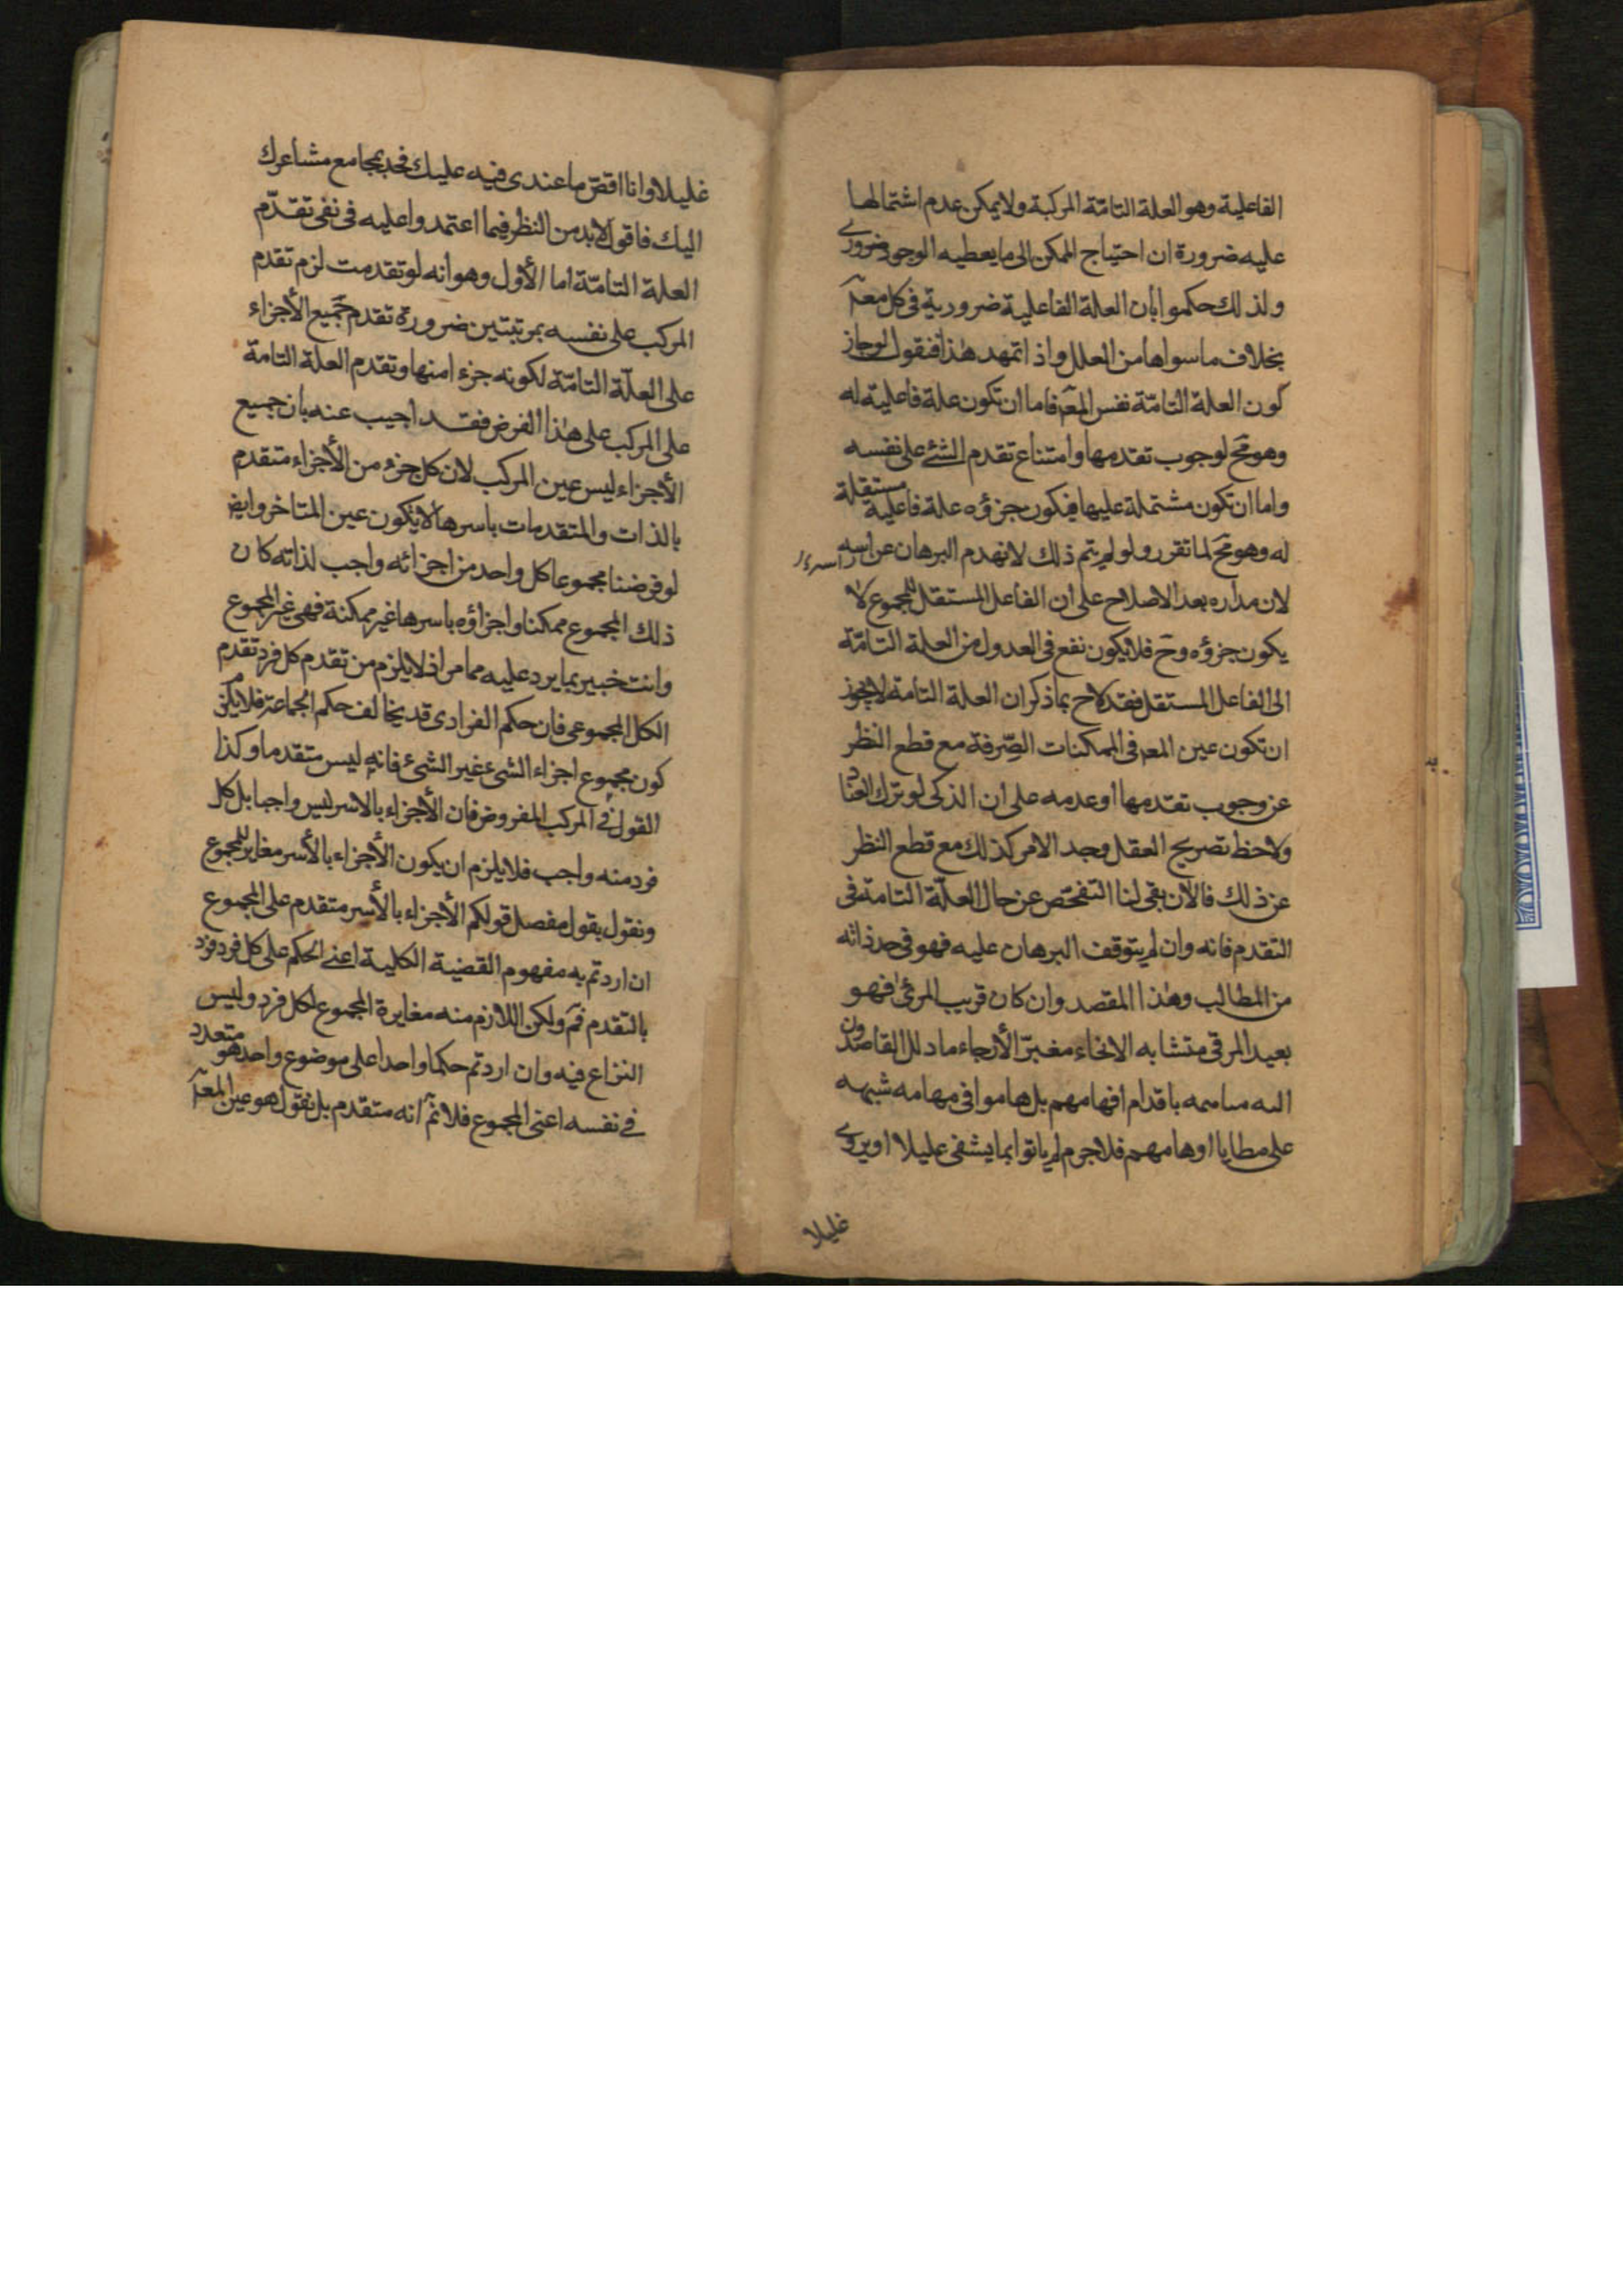 الفاعلية وهو العلة التامّة المركبة ولا يمكن عدم اشتمالها
عليه ضرورة ان احتياج الممكن الى ما يعطيه الوجود ضرورى
ولذلك حكموا بأن العلة الفاعلية ضرورية فى كل معلـ
بخلاف ما سواها من العلل واذا تمهد هذا فنقول لو جاز
كون العلة التامّة نفس المعـ فاما ان تكون علة فاعلية له
وهو مح لوجوب تقدمها وامتناع تقدم الشئ على نفسه
واما ان تكون مشتملة عليها فيكون جزؤه علة فاعلية مستقلة
له وهو مح لما تقرر ولو لم يتم ذلك لانهدم البرهان عن اسه
لان مداره بعد الاصلاح على ان الفاعل المستقل للمجموع لا
يكون جزؤه وح فلا يكون نفع فى العدول من العلة التامّة
الى الفاعل المستقل فقد لاح بما ذكر ان العلة التامة لا يجوز
ان تكون عين المعـ فى الممكنات الصّرفة مع قطع النظر
عن وجوب تقدمها او عدمه على ان الذكى لو ترك العناد
ولاحظ تصريح العقل وجد الامر كذلك مع قطع النظر
عن ذلك فالآن بقى لنا التفحّص عن حال العلّة التامة فى
التقدم فانه وان لم يتوقف البرهان عليه فهو فى حد ذاته
من المطالب وهذا المقصد وان كان قريب المرئى فهو
بعيد المرقى متشابه الانحاء مغبرّ الأرجاء ما دلل القاصدون
اليه باقدام افهامهم بل هاموا فى مهامه شبهه
على مطايا اوهامهم فلا جرم لم ياتوا بما يشفى عليلا او يروى
غليلا
غليلا وانا اقصّ ما عندى فيه عليك فخذ بمجامع مشاعرك
اليك فاقول لا بد من النظر فيما اعتمدوا عليه فى نفى تقدّم
العلة التامّة اما الأول وهو انه لو تقدمت لزم تقدم
المركب على نفسه بمرتبتين ضرورة تقدم جميع الأجزاء
على العلّة التامّة لكونه جزءا منها وتقدم العلة التامة
على المركب على هذا الفرض فقد اجيب عنه بان جميع
الأجزاء ليس عين المركب لان كل جزء من الأجزاء متقدم
بالذات والمتقدمات باسرها لا يكون عين المتاخر وايض
لو فرضنا مجموعا كل واحد من اجزائه واجب لذاته كان
ذلك المجموع ممكنا واجزاؤه باسرها غير ممكنة فهى غير المجموع
وانت خبير بما يرد عليه مما مر اذ لا يلزم من تقدم كل فرد تقدم
الكل المجموعى فان حكم الفرادى قد يخالف حكم الجماعة فلا يمكن
كون مجموع اجزاء الشئ غير الشئ فانه ليس متقدما وكذا
القول فى المركب المفروض فان الأجزاء بالاسر ليس واجبا بل كل
فرد منه واجب فلا يلزم ان يكون الأجزاء بالأسر مغاير للمجموع
ونقول بقول مفصل قولكم الأجزاء بالأسر متقدم على المجموع
ان اردتم به مفهوم القضية الكلية اعنى الحكم على كل فرد فرد
بالتقدم فمـ ولكن اللازم منه مغايرة المجموع لكل فرد وليس
النزاع فيه وان اردتم حكما واحدا على موضوع واحد هو متعدد
فى نفسه اعنى المجموع فلا نمـ انه متقدم بل نقول هو عين المعلـ